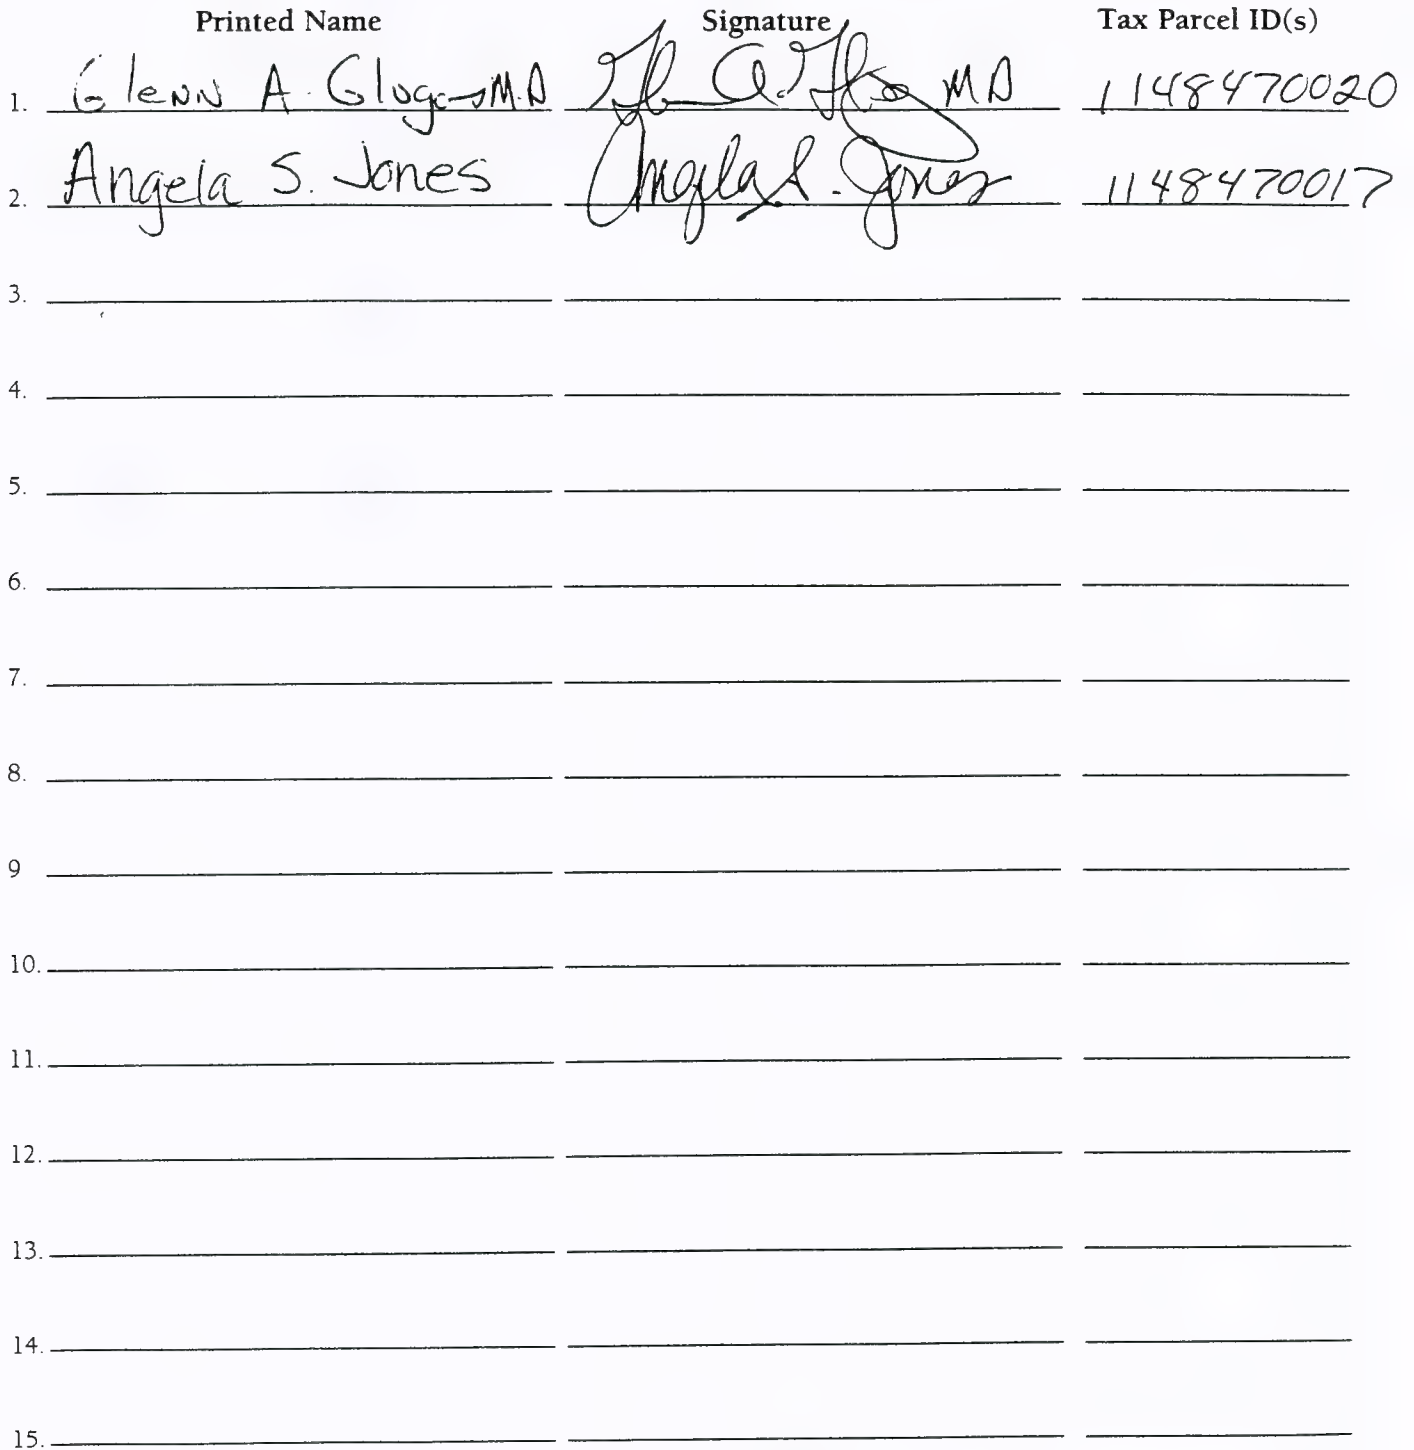 Printed Name Signature Tax Parcel ID(s)
1. Glenn A. M.D MD 1148470020
2. Angela S. Jones Angela S. Jones 1148470017
3.
4.
5.
6.
7.
8.
9
10.
11.
12.
13.
14.
15.